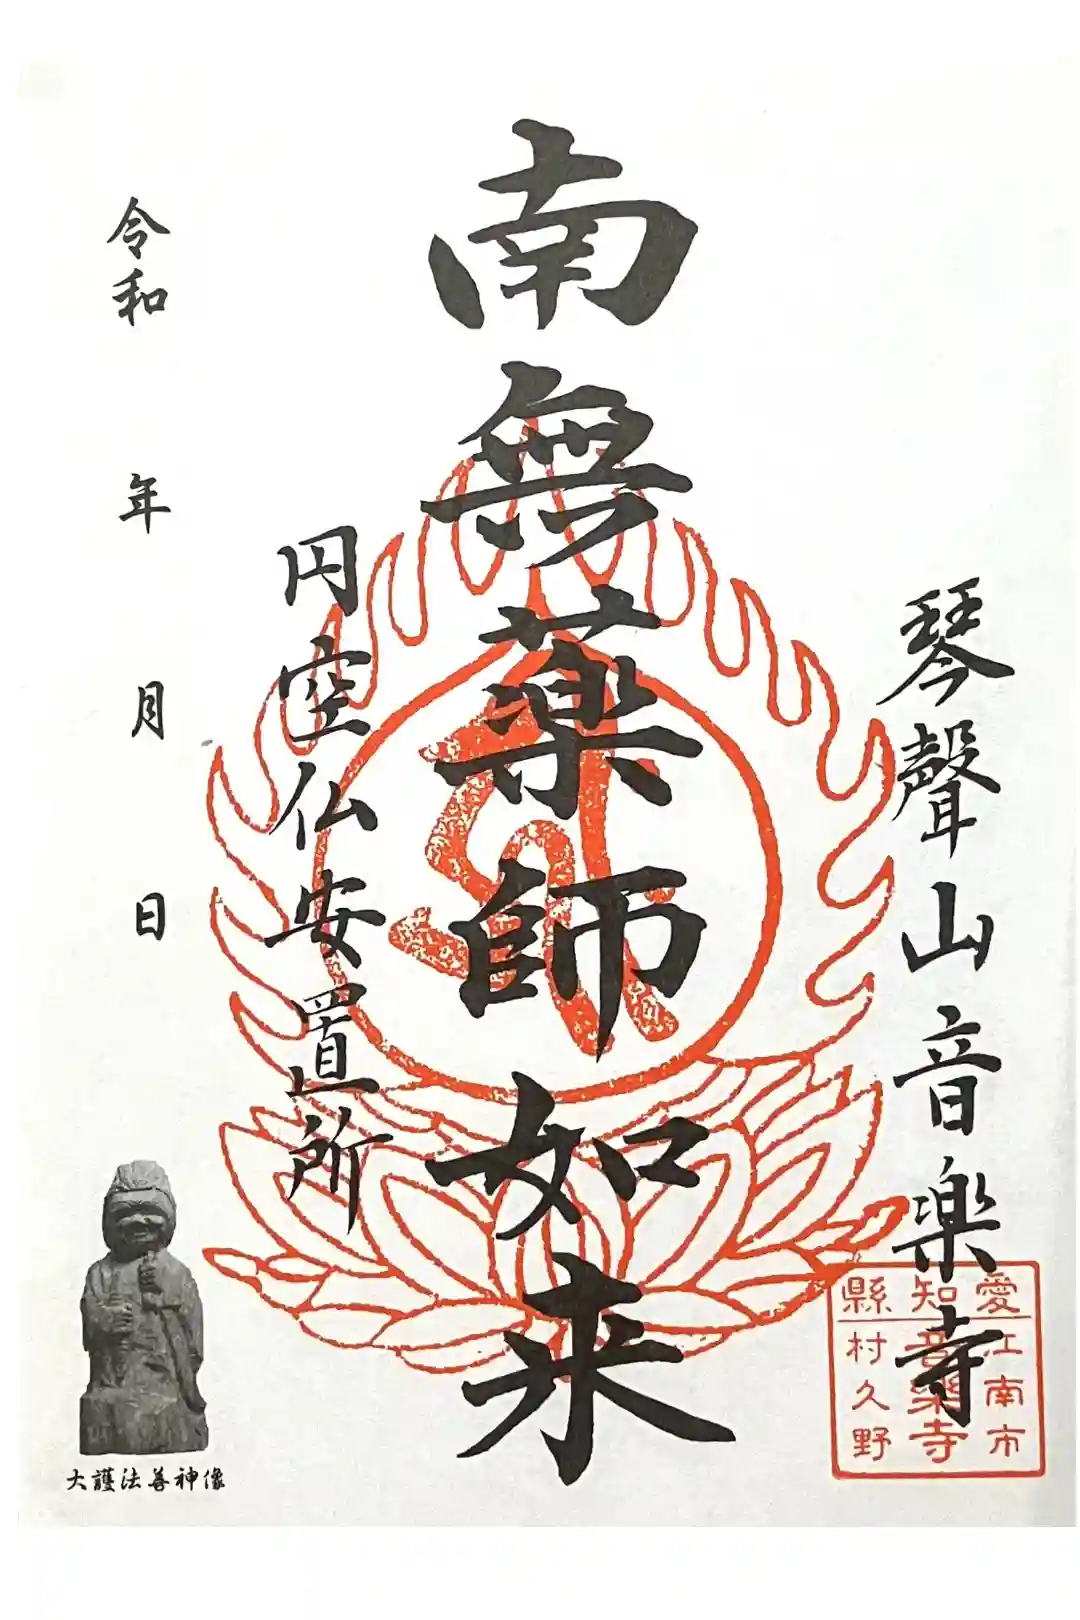 琴聲山音楽寺
愛知縣
江南市
音樂寺
村久野
南無薬師如来
円空仏安置所
令和 年 月 日
大護法善神像